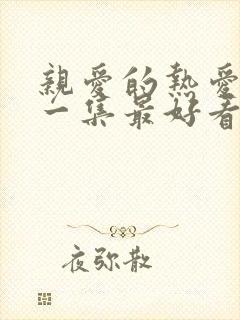 親愛的熱愛
一集最好看
夜弥散